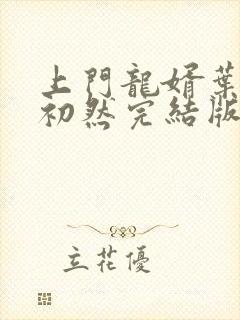 上門龍婿葉
初然完結版
立花優